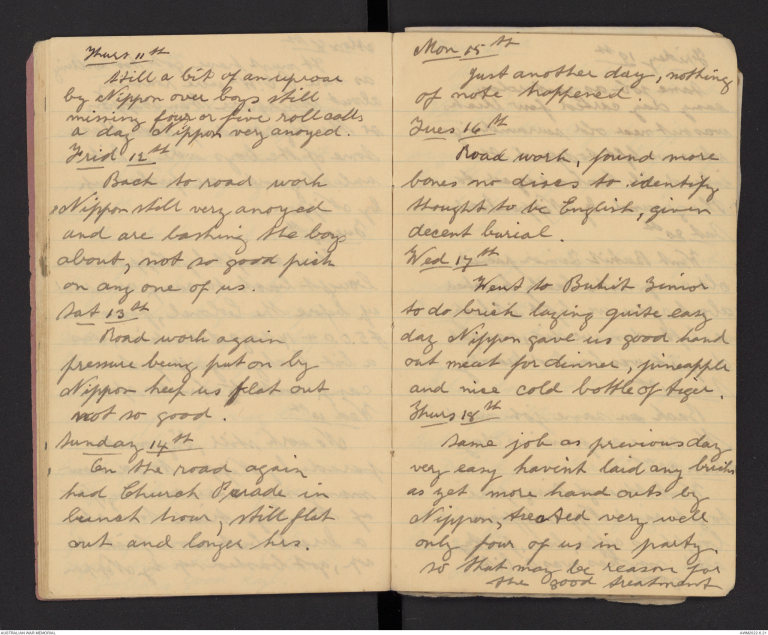 Thurs 11th
Still a bit of an uproar
by Nippon over boys still
missing four or five roll calls
a day Nippon very anoyed.
Frid 12th
Back to road work
Nippon still very anoyed
and are bashing the boys
about, not so good pick
on any one of us.
Sat 13th
Road work again
pressure being put on by
Nippon keep us flat out
not so good.
Sunday 14th
On the road again
had Church Parade in
lunch hour, still flat
out and longer hrs.
Mon 15th
Just another day, nothing
of note happened.
Tues 16th
Road work, found more
bones no discs to identify
thought to be English, given
decent burial.
Wed 17th
Went to Bukit Timor
to do brick laying quite easy
day Nippon gave us good hand
out meat for dinner, pineapple
and nice cold bottle of tiger.
Thurs 18th
Same job as previous day
very easy havint laid any bricks
as yet more hand outs by
Nippon, treated very well
only four of us in party.
so that may be reason for
the good treatment
AUSTRALIAN WAR MEMORIAL
AWM2022.6.21